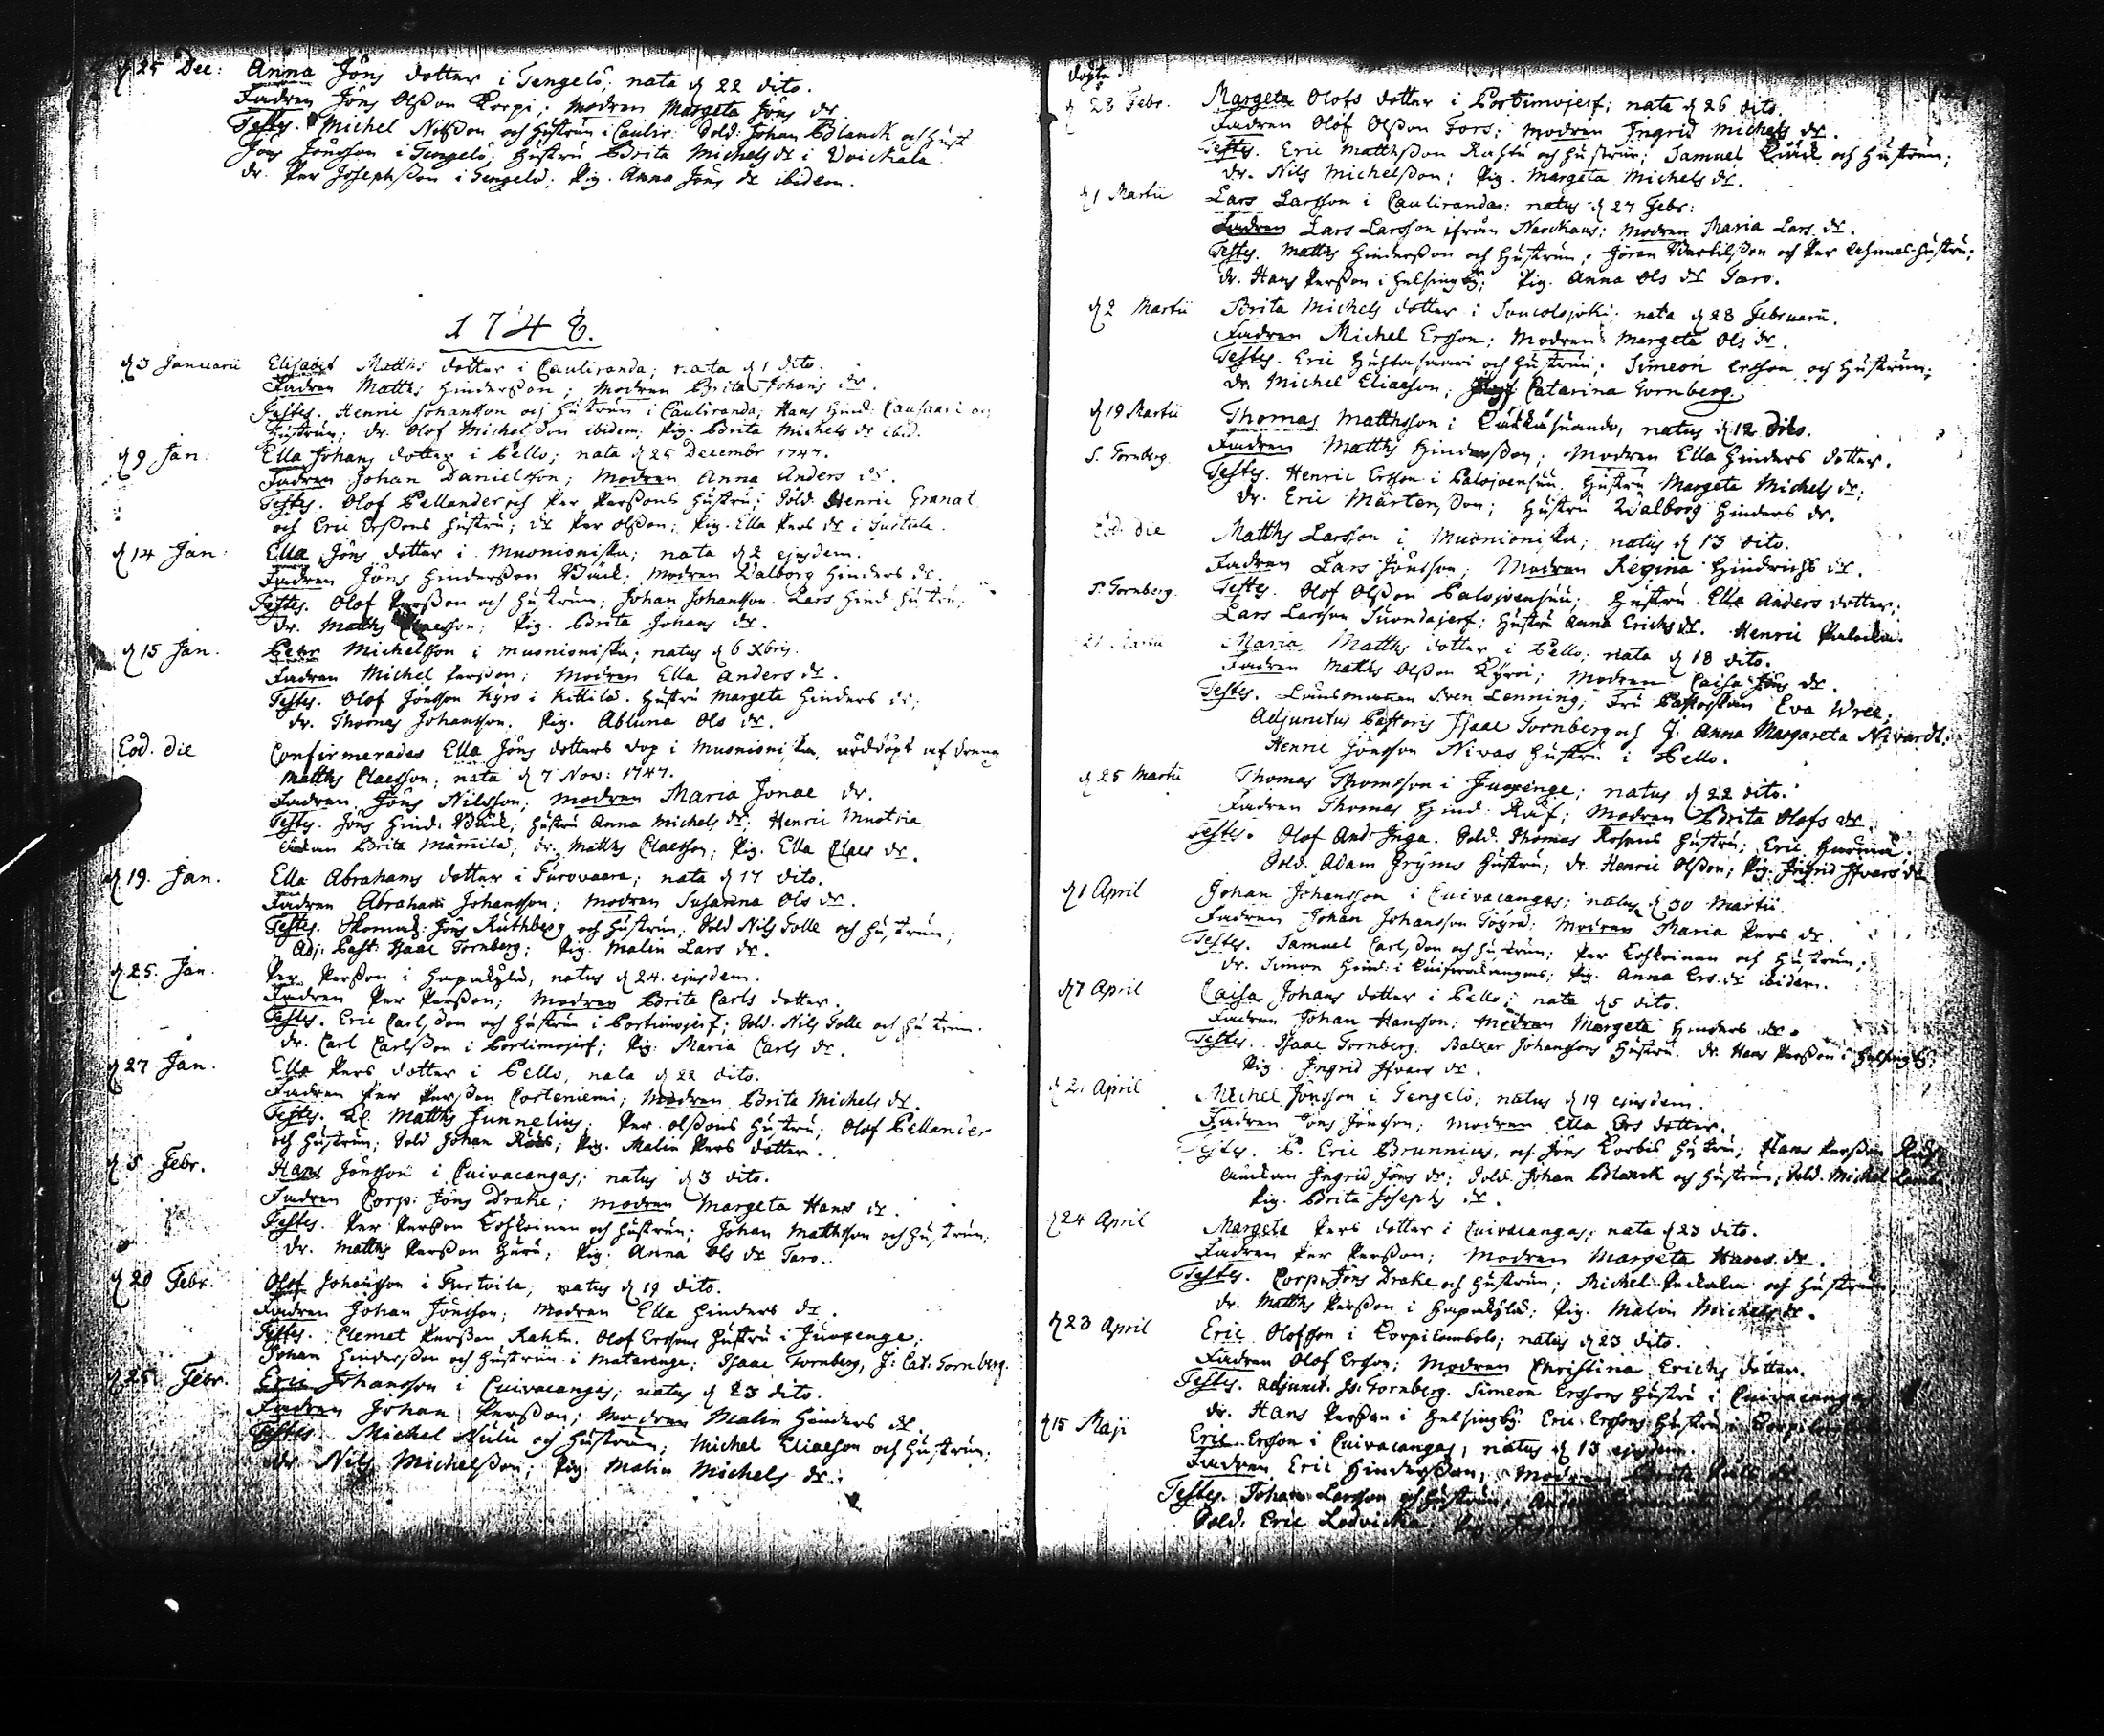 d 25 Dec: Anna Jöns dotter i Tengelö; nata d 22 dito.
Fadren Jöns Olsson Korpi; Modren Margeta Jöns dr
Testes. Michel Nilsson och Hustrun i Caulir. Sold: Johan Blanck och Hust
Jöns Jönsson i Tengelö; Hustru Brita Michels dr i Voickala
dr. Per Josephsson i Tengelö; Pig. Anna Jöns dr ibidem.
1748.
d 3 Januarii Elisabet Matths dotter i Cauliranda; nata d 1 dito.
Fadren Matths Hindersson; Modren Brita Johans dr.
Testes. Henric Johansson och Hustrun i Cauliranda; Hans Hind: Causaari oc
Hustrun; dr. Olof Michelsson ibidem; Pig. Brita Michels dr ibid.
d 9 Jan: Ella Johans dotter i Pello; nata d 25 Decembr 1747.
Fadren Johan Danielsson; Modren Anna Anders dr.
Testes. Olof Pellander och Per Perssons Hustru; Sold: Henric Granat
och Eric Erssons Hustru; dr Per Olsson; Pig. Ella Pers dr i
d 14 Jan: Ella Jöns dotter i Muonioniska; nata d 2 ejusdem.
Fadren Jöns Hindersson Bäck; Modren Valborg Hinders dr.
Testes. Olof Persson och Hustrun; Johan Johansson. Lars Hind Hustru;
dr. Matths Claesson; Pig. Brita Johans dr.
d 15 Jan. Pehr Michelsson i Muonioniska; natus d 6 Xbris.
Fadren Michel Persson; Modren Ella Anders dr.
Testes. Olof Jönsson Kyrö i Kittilä. Hustru Margeta Hinders dr;
dr. Thomas Johansson. Pig. Abluna Ols dr.
Eod. die Confirmerades Ella Jöns dotters dop i Muonioniska, nöddöpt af dreng
Matths Claesson; nata d 7 Nov: 1747.
Fadren Jöns Nilsson; Modren Maria Jonae dr.
Testes. Jöns Hind: Bäck; Hustru Anna Michels dr; Henric Muotria
Enkan Brita Mämilä; dr. Matths Claesson; Pig. Ella Claes dr.
d 19. Jan. Ella Abrahams dotter i Turovaara; nata d 17 dito.
Fadren Abraham Johansson; Modren Susanna Ols dr.
Testes. Jöns Ruthberg och Hustrun; Sold Nils Tolle och Hustrun;
Adj: Past: Isaac Tornberg; Pig. Malin Lars dr.
d 25. Jan. Per Persson i Hapakylä, natus d 24. ejusdem.
Fadren Per Persson; Modren Brita Carls dotter.
Testes. Eric Carlsson och Hustrun i Portimojerf; Sold. Nils Tolle och Hustrun.
dr. Carl Carlsson i Portimojerf; Pig: Maria Carls dr.
d 27 Jan. Ella Pers dotter i Pello, nata d 22 dito.
Fadren Per Persson Corteniemi; Modren Brita Michels dr.
Testes. Matths Junnelius; Per Olssons Hustru; Olof Pellander
och Hustrun; Sold Johan; Pig. Malin Pers dotter.
d 5 Febr. Hans Jönsson i Cuivacangas; natus d 3 dito.
Fadren Corp: Jöns Drake; Modren Margeta Hans dr.
Testes. Per Persson Koskoinen och Hustrun; Johan Matthsson och Hustrun;
dr. Matths Persson Huru; Pig. Anna Ols dr Taro.
d 20 Febr. Olof Johansson i Turtola; natus d 19 dito.
Fadren Johan Jönsson; Modren Ella Hinders dr.
Testes. Clemet Persson Rahtu. Olof Erssons Hustru i Juoxenge;
Johan Hindersson och Hustrun i Matarenge; Isaac Tornberg, J: Cat: Tornberg.
d 25 Febr. Eric Johansson i Cuivacangas; natus d 23 dito.
Fadren Johan Persson; Modren Malin Hinders dr.
Testes. Michel Niuu och Hustrun; Michel Eliaeson och Hustrun;
dr Nils Michelsson; Pig Malin Michels dr.
döpte.
d 28 Febr. Margeta Olofs dotter i Portimojerf; nata d 26 dito.
Fadren Olof Olsson Fors; Modren Ingrid Michels dr.
Testes. Eric Matthsson Rahtu och Hustrun; Samuel och Hustrun;
dr. Nils Michelsson; Pig. Margeta Michels dr.
d 1 Martii Lars Larsson i Cauliranda: natus d 27 Febr:
Fadren Lars Larsson ifrån Narckaus; Modren Maria Lars dr.
Testes. Matths Hindersson och Hustrun; Jöran Bertilsson och Per Hustru;
dr. Hans Persson i Helsingby; Pig. Anna Ols dr Taro.
d 2 Martii Brita Michels dotter i; nata d 28 Februarii.
Fadren Michel Ersson; Modren Margeta Ols dr.
Testes. Eric Huhtasaari och Hustrun; Simeon Ersson och Hustrun;
dr. Michel Eliaeson; Catarina Tornberg.
d 19 Martii Thomas Matthsson i Käkkäsuando, natus d 12 dito.
S. Tornberg. Fadren Matths Hindersson; Modren Ella Hinders dotter.
Testes. Henric Ersson i Palojoensuu. Hustru Margeta Michels dr;
dr. Eric Mårtensson; Hustru Walborg Hinders dr.
Eod. die Matths Larsson i Muonioniska; natus d 13 dito.
Fadren Lars Jönsson; Modren Regina Hindrichs dr.
S. Tornberg. Testes. Olof Olsson Palojoensuu; Hustru Ella Anders dotter;
Lars Larsson Suondajerf; Hustru Anna Erichs dr. Henric
21 Martii Maria Matths dotter i Pello; nata d 18 dito.
Fadren Matths Olsson Kyrö; Modren Caisa Jöns dr.
Testes. Länsmannen Sven Lenning; Fru Pastorskan Eva Wree;
Adjunctus Pastoris Isaac Tornberg och J. Anna Margareta Nivardt;
Henric Jönsson Nivas Hustru i Pello.
d 25 Martii Thomas Thomsson i Juoxenge; natus d 22 dito.
Fadren Thomas Hind: Räf; Modren Brita Olofs dr.
Testes. Olof And: Inga. Sold. Thomas Rosens Hustru; Eric
Sold. Adam Gryms Hustru; dr. Henric Olsson; Pig. Ingrid Ifvars dr
d 1 April Johan Johansson i Cuivacangas; natus d 30 Martii.
Fadren Johan Johansson Töyrä; Modren Maria Pers dr.
Testes. Samuel Carlsson och Hustrun; Per Koskoinen och Hustrun;
dr. Simon Hind: i Cuivacangas; Pig. Anna Ers dr ibidem.
d 7 April Caisa Johans dotter i Pello; nata d 5 dito.
Fadren Johan Hansson; Modren Margeta Hinders dr.
Testes. Isaac Tornberg. Balzar Johanssons Hustru. dr. Hans Persson i Helsingby.
Pig. Ingrid Ifvars dr.
d 21 April Michel Jönsson i Tengelö; natus d 19 ejusdem.
Fadren Jöns Jönsson; Modren Ella Ers dotter.
Testes. P. Eric Brunnius, och Jöns Korbis Hustru; Hans Persson
Enckan Ingrid Jöns dr; Sold. Johan Blanck och Hustrun; Sold. Michel
Pig. Brita Josephs dr.
d 24 April Margeta Pers dotter i Cuivacangas; nata d 23 dito.
Fadren Per Persson; Modren Margeta Hans dr.
Testes. Corp: Jöns Drake och Hustrun; Michel och Hustrun;
dr. Matths Persson i Hapakylä; Pig. Malin Michels dr.
d 23 April Eric Olofsson i Korpilombolo; natus d 23 dito.
Fadren Olof Ersson; Modren Christina Erichs dotter.
Testes. Adjunct. Is: Tornberg. Simeon Erssons Hustru i Cuivacangas
dr. Hans Persson i Helsingby. Eric Erssons Hustru i
d 15 Maji Eric Ersson i Cuivacangas, natus d 13 ejusdem.
Fadren Eric Hindersson; Modren Brita
Testes. Johan Larsson och Hustrun;
Sold. Eric Lodvicka; Pig Ingrid